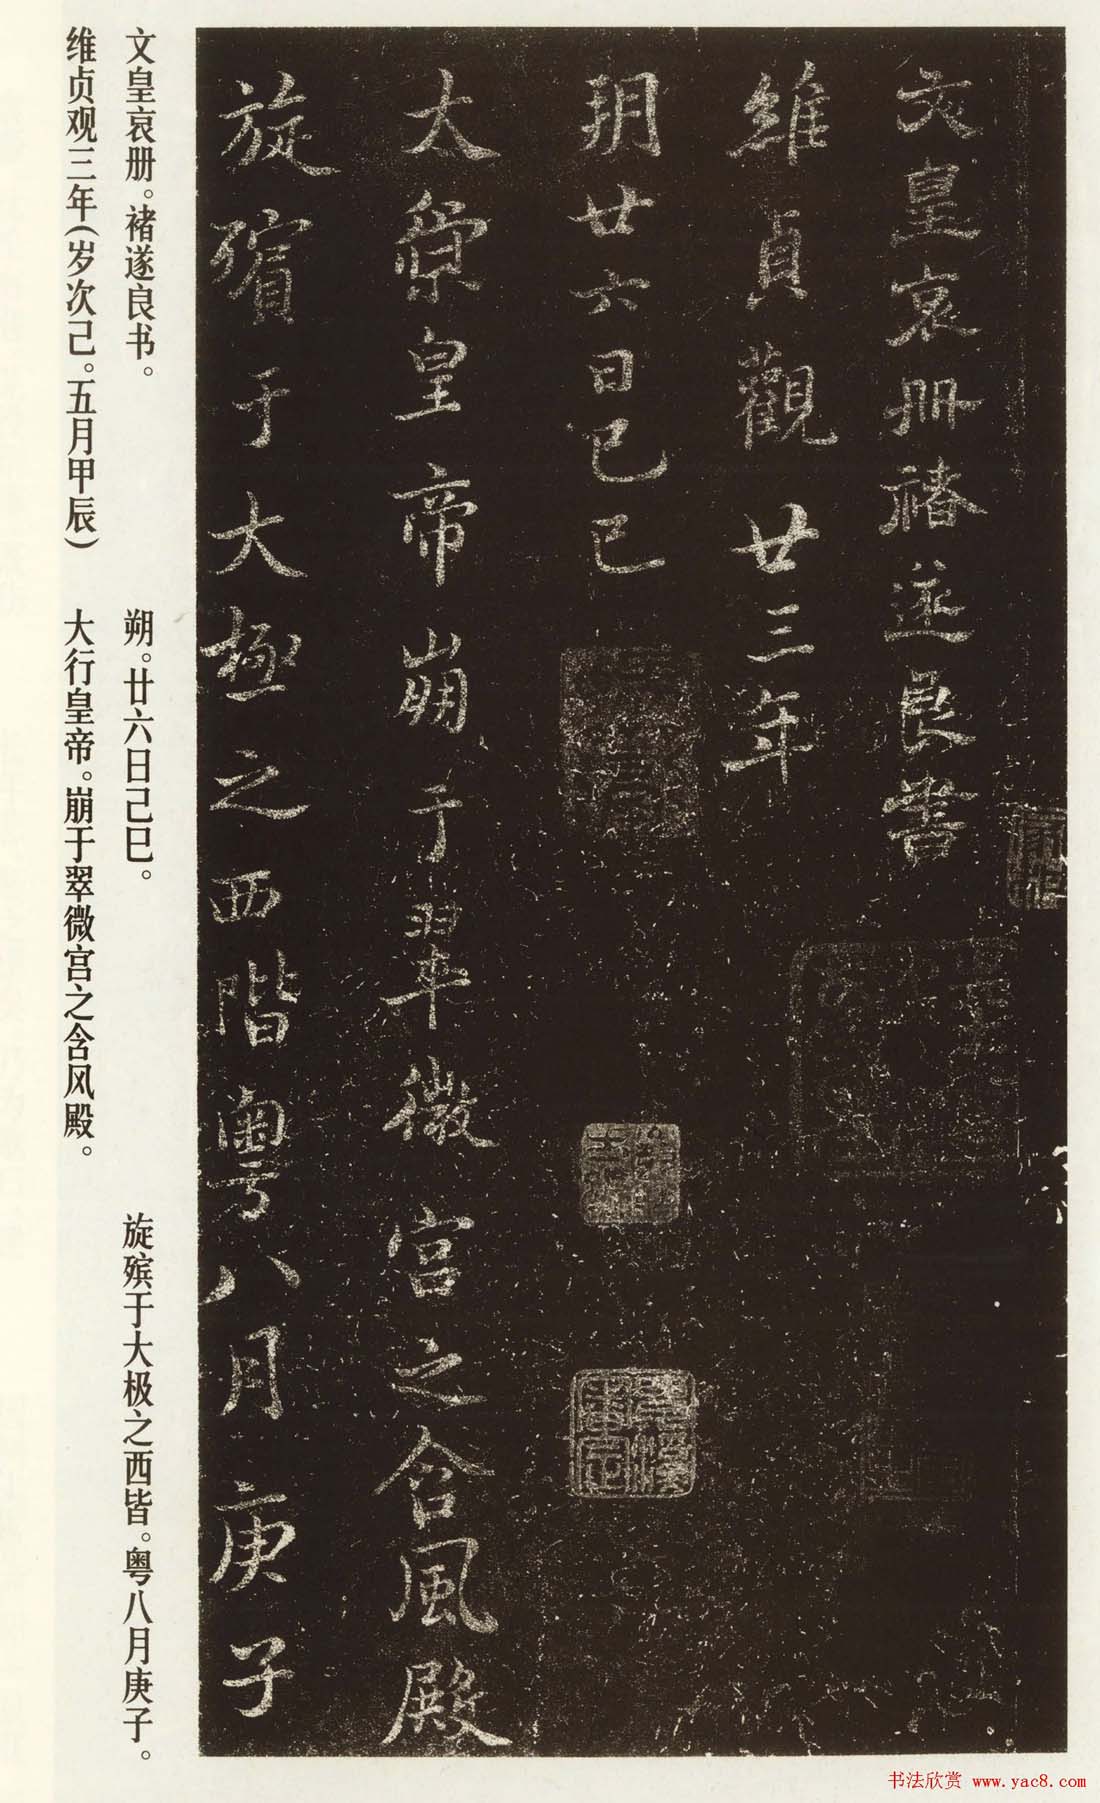 文皇哀冊褚遂良書
維貞觀廿三年
朔廿六日己巳
太宗皇帝崩于翠微宮之含風殿
旋殯于大極之西階粤八月庚子
文皇哀册。褚遂良书。
维贞观三年(岁次己。五月甲辰)
朔。廿六日己巳。
大行皇帝。崩于翠微宫之含风殿。
旋殡于大极之西皆。粤八月庚子。
书法欣赏 www.yac8.com